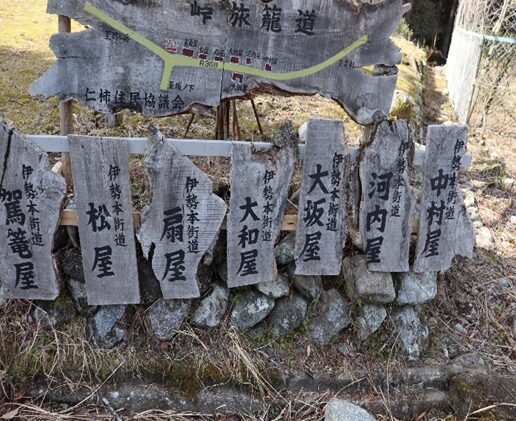 峠旅籠道
R368
至坂ノ下
仁柿住民協議会
伊勢本街道
駕篭屋
伊勢本街道
松屋
伊勢本街道
扇屋
伊勢本街道
大和屋
伊勢本街道
大坂屋
伊勢本街道
河内屋
伊勢本街道
中村屋